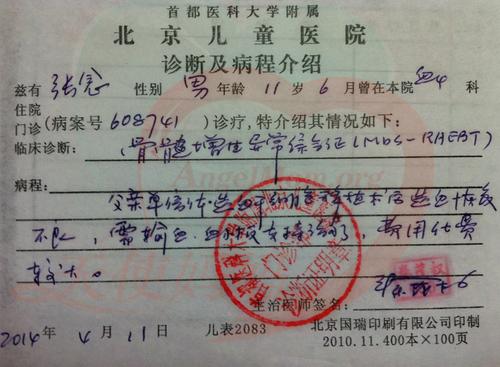 首都医科大学附属
北京儿童医院
诊断及病程介绍
兹有 张 性别 男 年龄 11 岁 6 月曾在本院 血4 科
住院
门诊(病案号 608741 )诊疗,特介绍其情况如下:
临床诊断: (骨髓增生异常综合征(MDS-RAEBT)
病程:
父亲单倍体造血干细胞移植术后造血恢复
不良,需输血、血小板支持治疗,费用
较大。
主治医师签名:
2014 年 4 月 11 日 儿表2083 北京国瑞印刷有限公司印制
2010.11.400本×100页
AngelMom.org